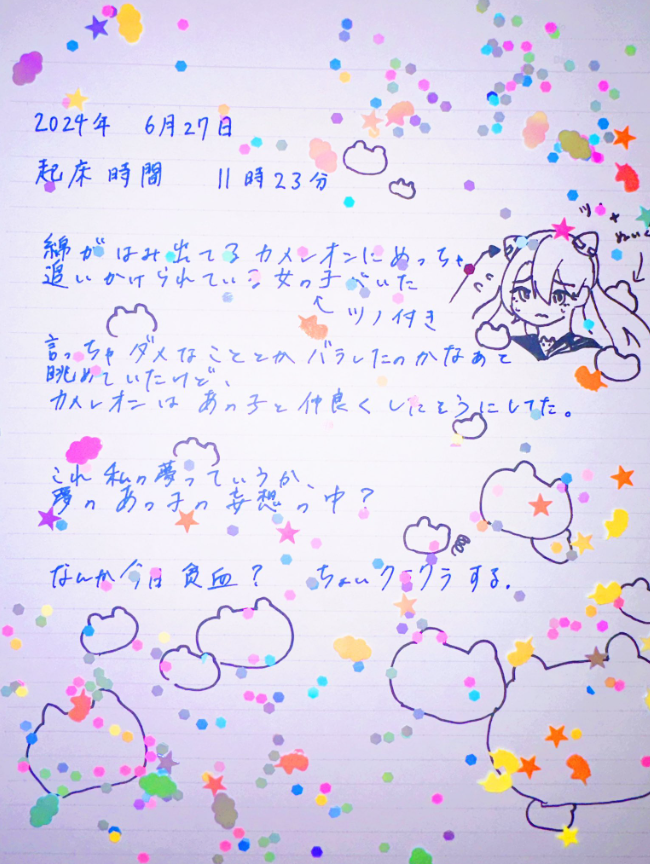 2024年 6月27日
起床時間 11時23分
ツノ
綿がはみ出てるカメレオンにめっちゃ
追いかけられている女の子がいた
ツノ付き
言っちゃダメなこととかバラしたのかなぁと
眺めていたけど、
カメレオンはあの子と仲良くしたそうにしてた。
これ私の夢っていうか、
夢のあの子の妄想の中?
なんか今日貧血? ちょいクラクラする.